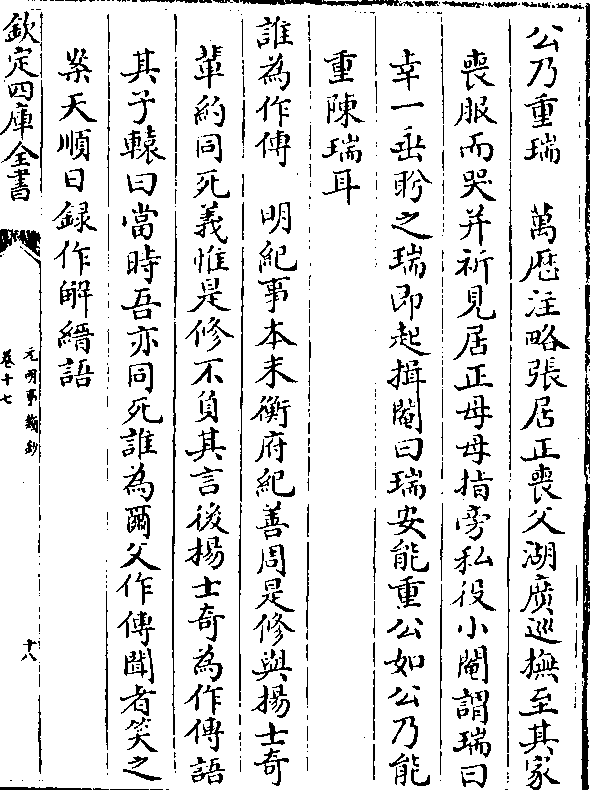 公乃重瑞　萬厯注略張居正喪父湖廣巡撫至其家
喪服而哭并祈見居正母母指旁私役小閹謂瑞曰
幸一垂盻之瑞即起揖閹曰瑞安能重公如公乃能
重陳瑞耳
誰為作傳　明紀事本末衡府紀善周是修與揚士奇
輩約同死義惟是修不負其言後揚士奇為作傳語
其子轅曰當時吾亦同死誰為爾父作傳聞者笑之
案天順日録作解縉語
欽定四庫全書
元明事類鈔
卷十七
十八